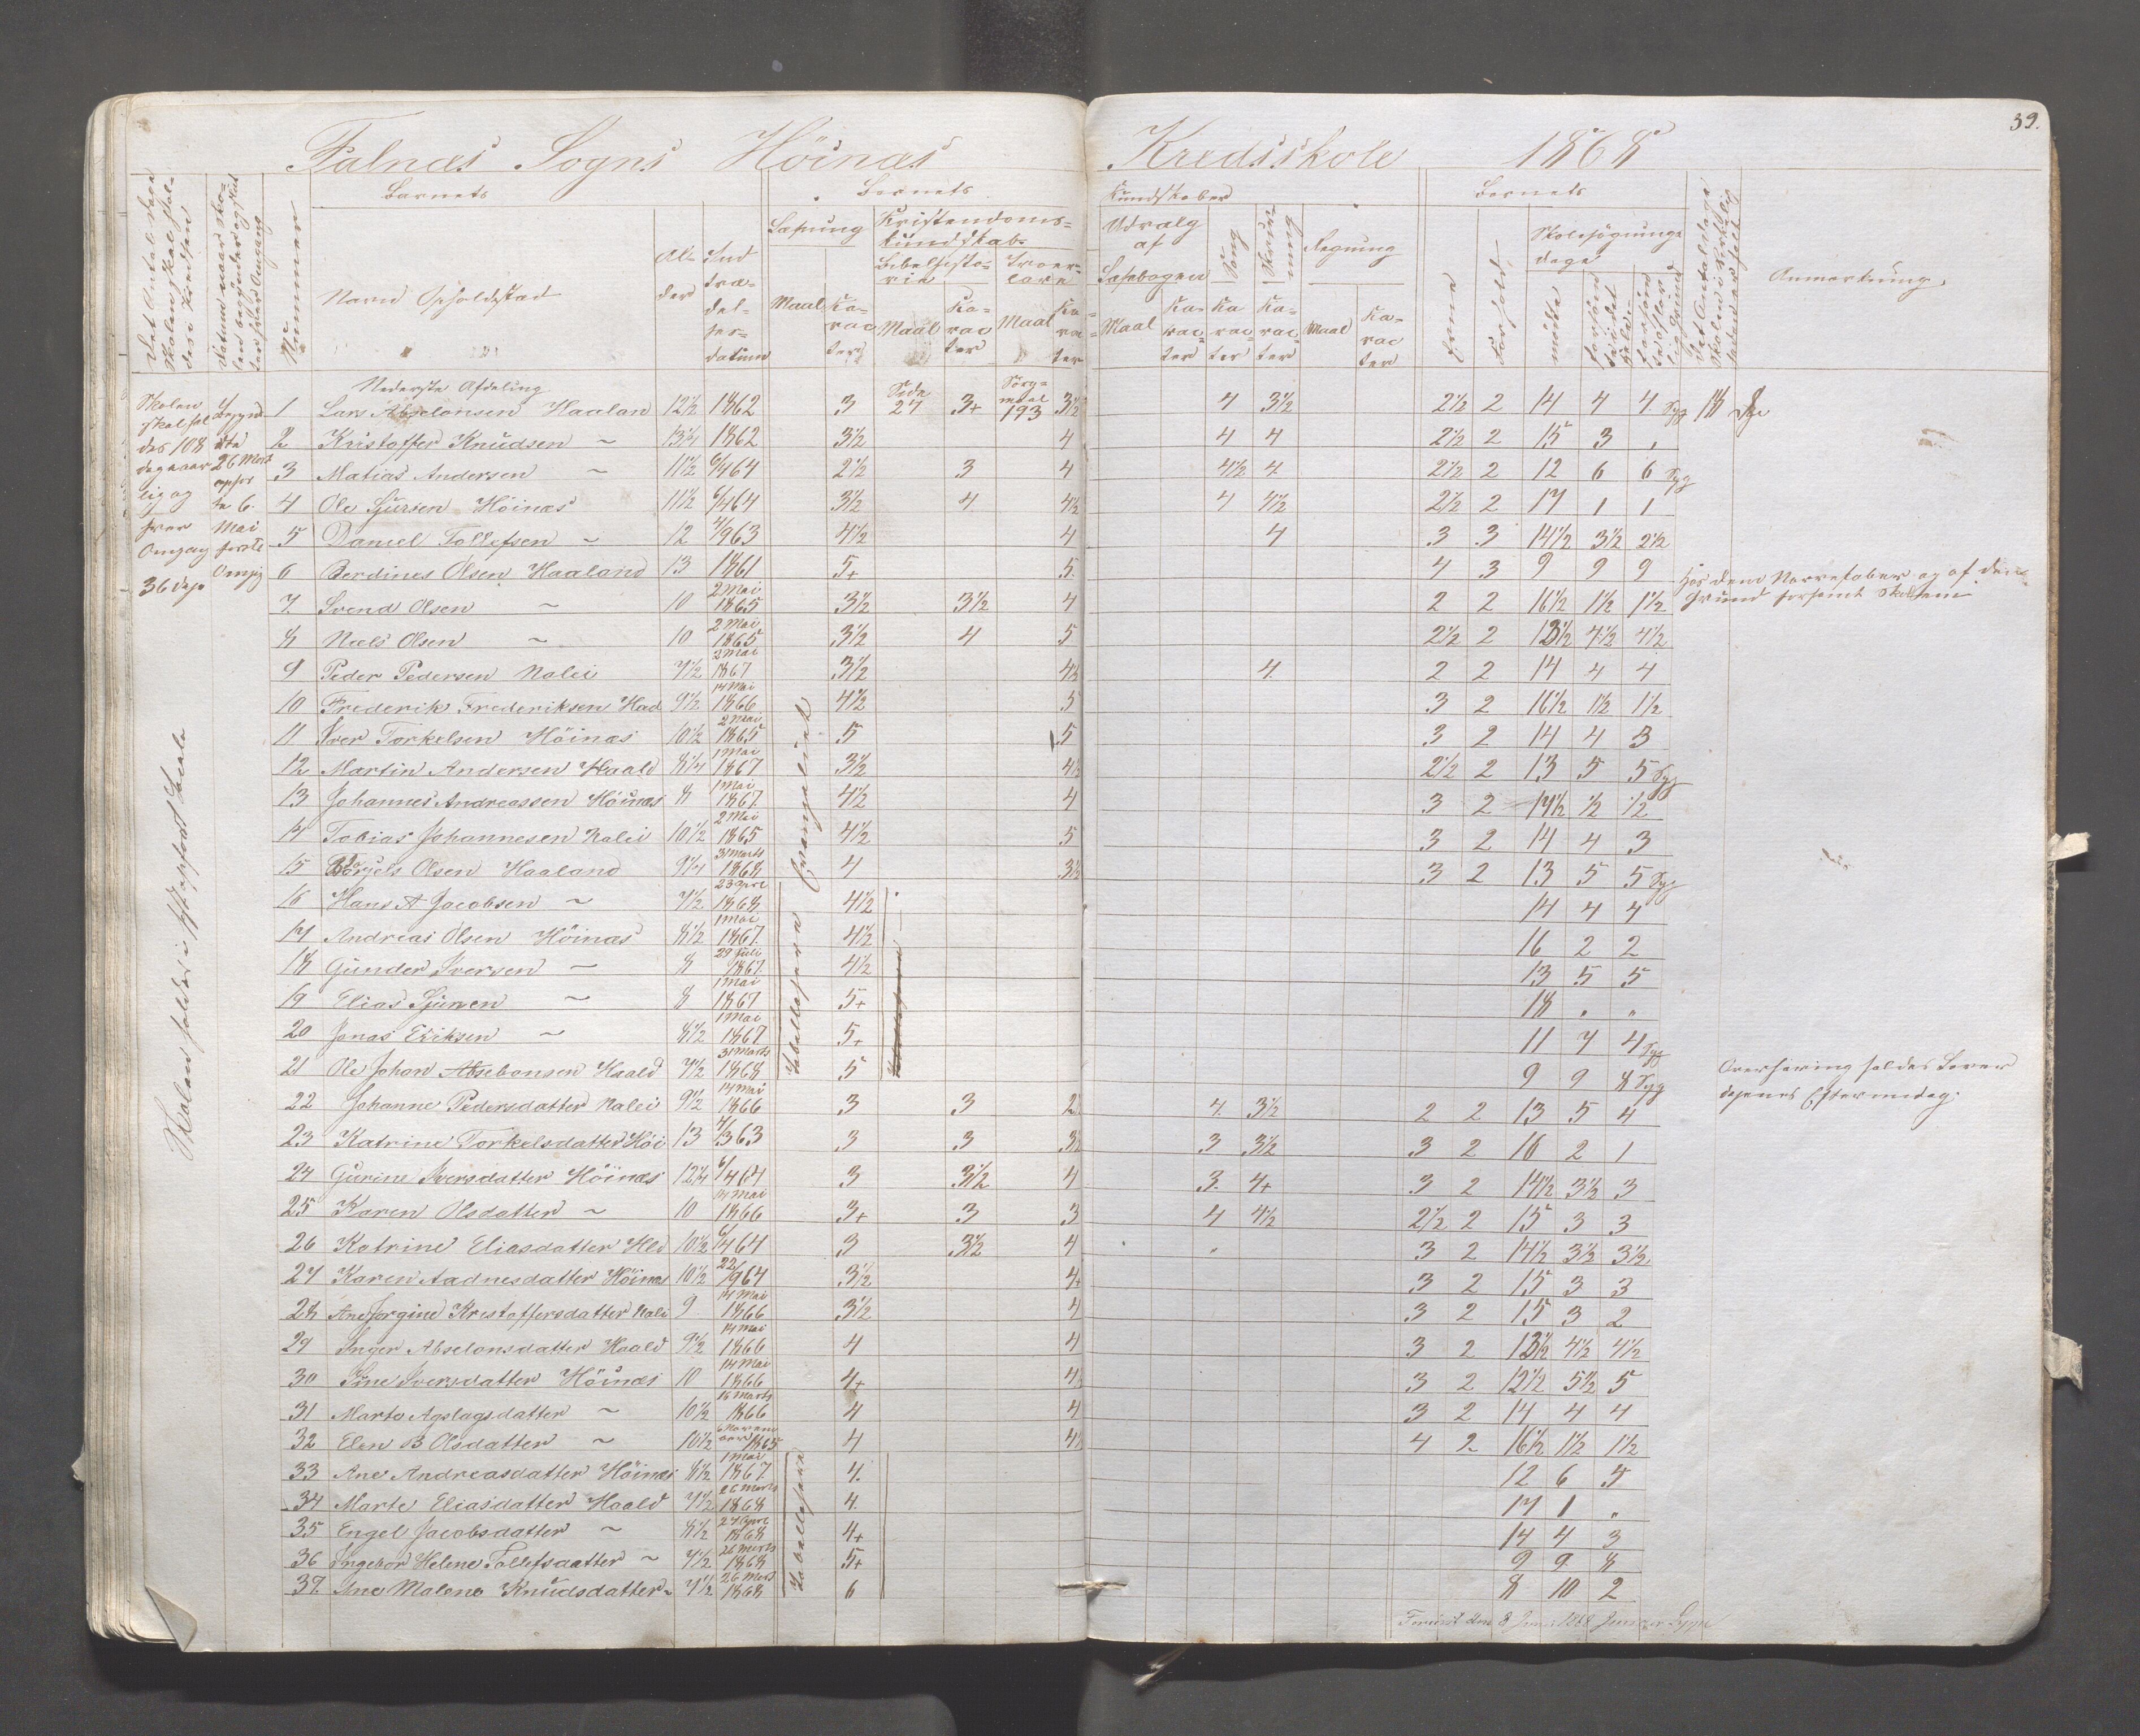 39.
Falnæs Sogns Höinæs Kredsskole 1868
Barnets Barnets Kundskaber Barnets
Nummer
Navn Opholdssted
Alder
Indtrædelsesdatum
Læsning
Maal Karacter
Kristendomskundskab
Bibelhistorie
Maal Karacter
Troeslære
Maal Karacter
Udvalg af Læsebogen
Maal Karacter
Sang Karacter
Skrivning Karacter
Regning
Maal Karacter
Evne
Forhold
Skolesøgningsdage
mødte
Anmærkning.
Skolen skal holdes 108 dage aarlig og hver Omgang 36 Dage
Begyndte 26 Marts ophørte 6. Mai første Omgang
Nederste Afdeling
1 Lars Absalonsen Haalan 12½ 1862 3 Side 27 3+ 193 3½ 4 3½ 2½ 2 14 4 4 Syg 18 Dge
2 Kristoffer Knudsen ~ 13¼ 1862 3½ 4 4 4 2½ 2 15 3 ,
3 Matias Andersen ~ 11½ 6/4 64 2½ 3 4 4½ 4 2½ 2 12 6 6 Syg
4 Ole Sjursen Höinæs 11½ 6/4 64 3½ 4 4½ 4 4½ 2½ 2 17 1 1
5 Daniel Tollefsen ~ 12 4/9 63 4½ 4 4 3 3 14½ 3½ 2½
6 Berdines Olsen Haaland 13 1861 5+ 5. 4 3 9 9 9
7. Svend Olsen ~ 10 2 Mai 1865 3½ 3½ 4 2 2 16½ 1½ 1½
8 Niels Olsen ~ 10 2 Mai 1865 3½ 4 5 2½ 2 13½ 4½ 4½
9 Peder Pedersen Nalei 7½ 2 Mai 1867 3½ 4½ 4. 2 2 14 4 4
10 Frederik Frederiksen Haa 9½ 14 Mai 1866 4½ 5 3 2 16½ 1½ 1½
11 Iver Torkelsen Höinæs 10½ 2 Mai 1865 5 5 3 2 14 4 3
12 Martin Andersen Haald 8¼ 1 Mai 1867 3½ 4½ 2½ 2 13 5 5 Syg
13 Johannes Andreassen Höinæs 8 1 Mai 1867. 4½ 4 3 2 17½ ½ ½
14 Tobias Johannesen Nalei 10½ 2 Mai 1865 4½ 5 3 2 14 4 3
15 Olsen Haaland 9¼ 31 Marts 1868 4 3½ 3 2 13 5 5 Syg
16 Hans A Jacobsen ~ 7½ 23 Apr 1868 4½ 14 4 4
17 Andreas Olsen Höinæs 8½ 1 Mai 1867. 4½ 16 2 2
18 Gunder Iversen ~ 8 29 Juli 1867. 4½ 13 5 5
19 Elias Sjursen ~ 8 1 Mai 1867 5+ 18 „ „
20 Jonas Eriksen ~ 8½ 1 Mai 1867 5+ 11 7 4 Syg
21 Ole Johan Absebonsen Haald 7½ 31 Marts 1868 5 9 9 8 Syg
22 Johanne Pedersdatter Nalei 9½ 14 Mai 1866 3 3 2½ 4. 3½ 2 2 13 5 4
23 Katrine Torkelsdatter Höi 13 4/3 63 3 3 3½ 3 3½ 3 2 16 2 1
24 Gurine Iversdatter Höinæs 12¼ 6/4 64 3 3½ 4 3. 4+ 3 2 14½ 3½ 3
25 Karen Olsdatter ~ 10 14 Mai 1866 3+ 3 3 4 4½ 2½ 2 15 3 3
26 Katrine Eliasdatter Hld 10½ 6/4 64 3 3½ 4 „ 3 2 14½ 3½ 3½
27 Karen Aadnesdatter Höinæs 10½ 22/9 64 3½ 4+ 3 2 15 3 3
28 Ane Jorgine Kristoffersdatter Nalei 9 14 Mai 1866 3½ 4 3 2 15 3 2
29 Inger Abselonsdatter Haald 9½ 14 Mai 1866 4 4 3 2 13½ 4½ 4½
30 Sine Iversdatter Höinæs 10 14 Mai 1866 4+ 4½ 3 2 12½ 5½ 5
31 Marta Aslagsdatter ~ 10½ 16 Marts 1866 4 4 3 2 14 4 4
32 Elen B Olsdatter ~ 10½ 6 November 1865 4 4½ 4 2 16½ 1½ 1½
33 Ane Andreasdatter Höinæs 8½ 1 Mai 1867 4. 12 6 5
34 Marte Eliasdatter Haald 7½ 26 Marts 1868 4. 17 1 „
35 Engel Jacobsdatter ~ 8½ 27 Apr 1868 4+ 14 4 3
36 Ingebor Helene Tollefsdatter ~ 7½ 26 Marts 1868 5+ 9 9 8
37. Ine Malene Knudsdatter ~ 7½ 26 Mart 1868 6 8 10 2
Evangeliet
Skolen holdes i
Hos dem og af den
Grund forsømt Skolen
Overhøring holdes hver
dagenes Eftermidag.
den 8 Juni 1868